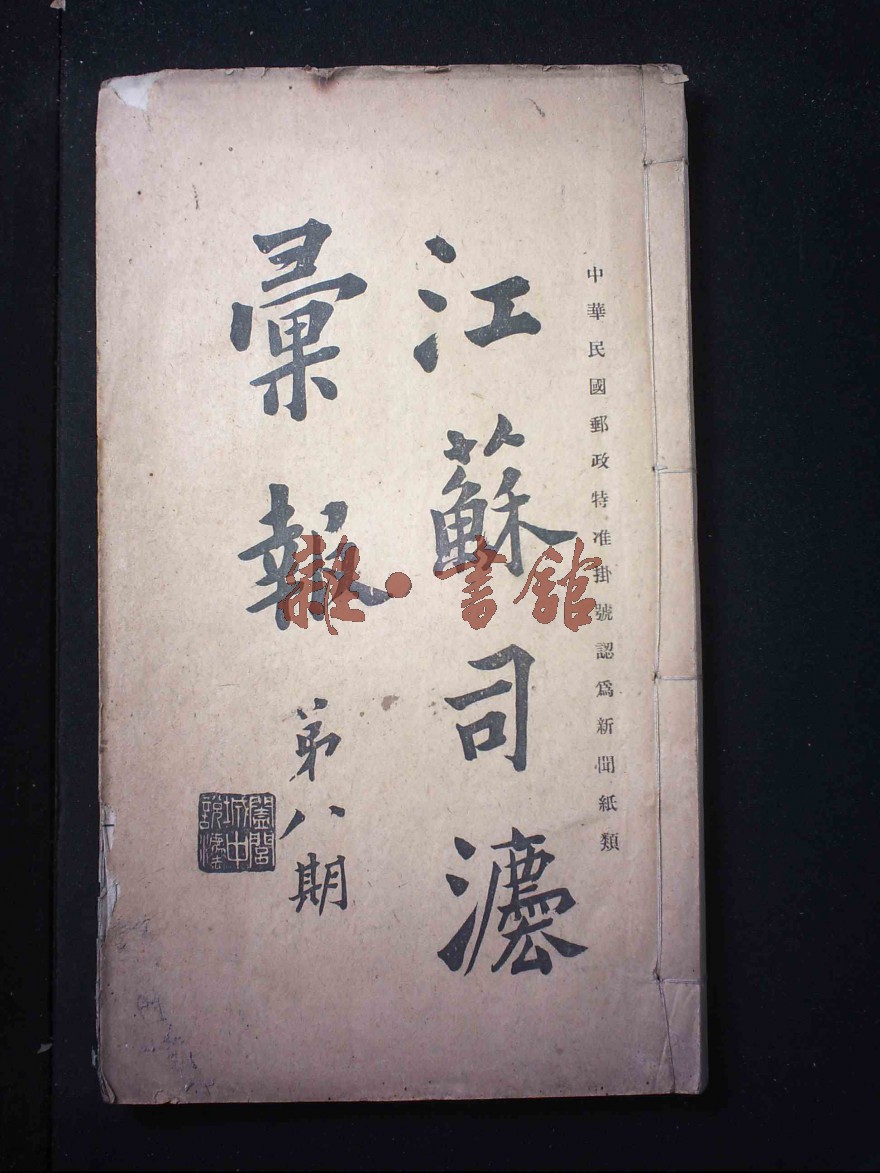 中華民國郵政特准掛號認爲新聞紙類
江蘇司灋
彙報
第八期
闔閭
城中
說灋
書館